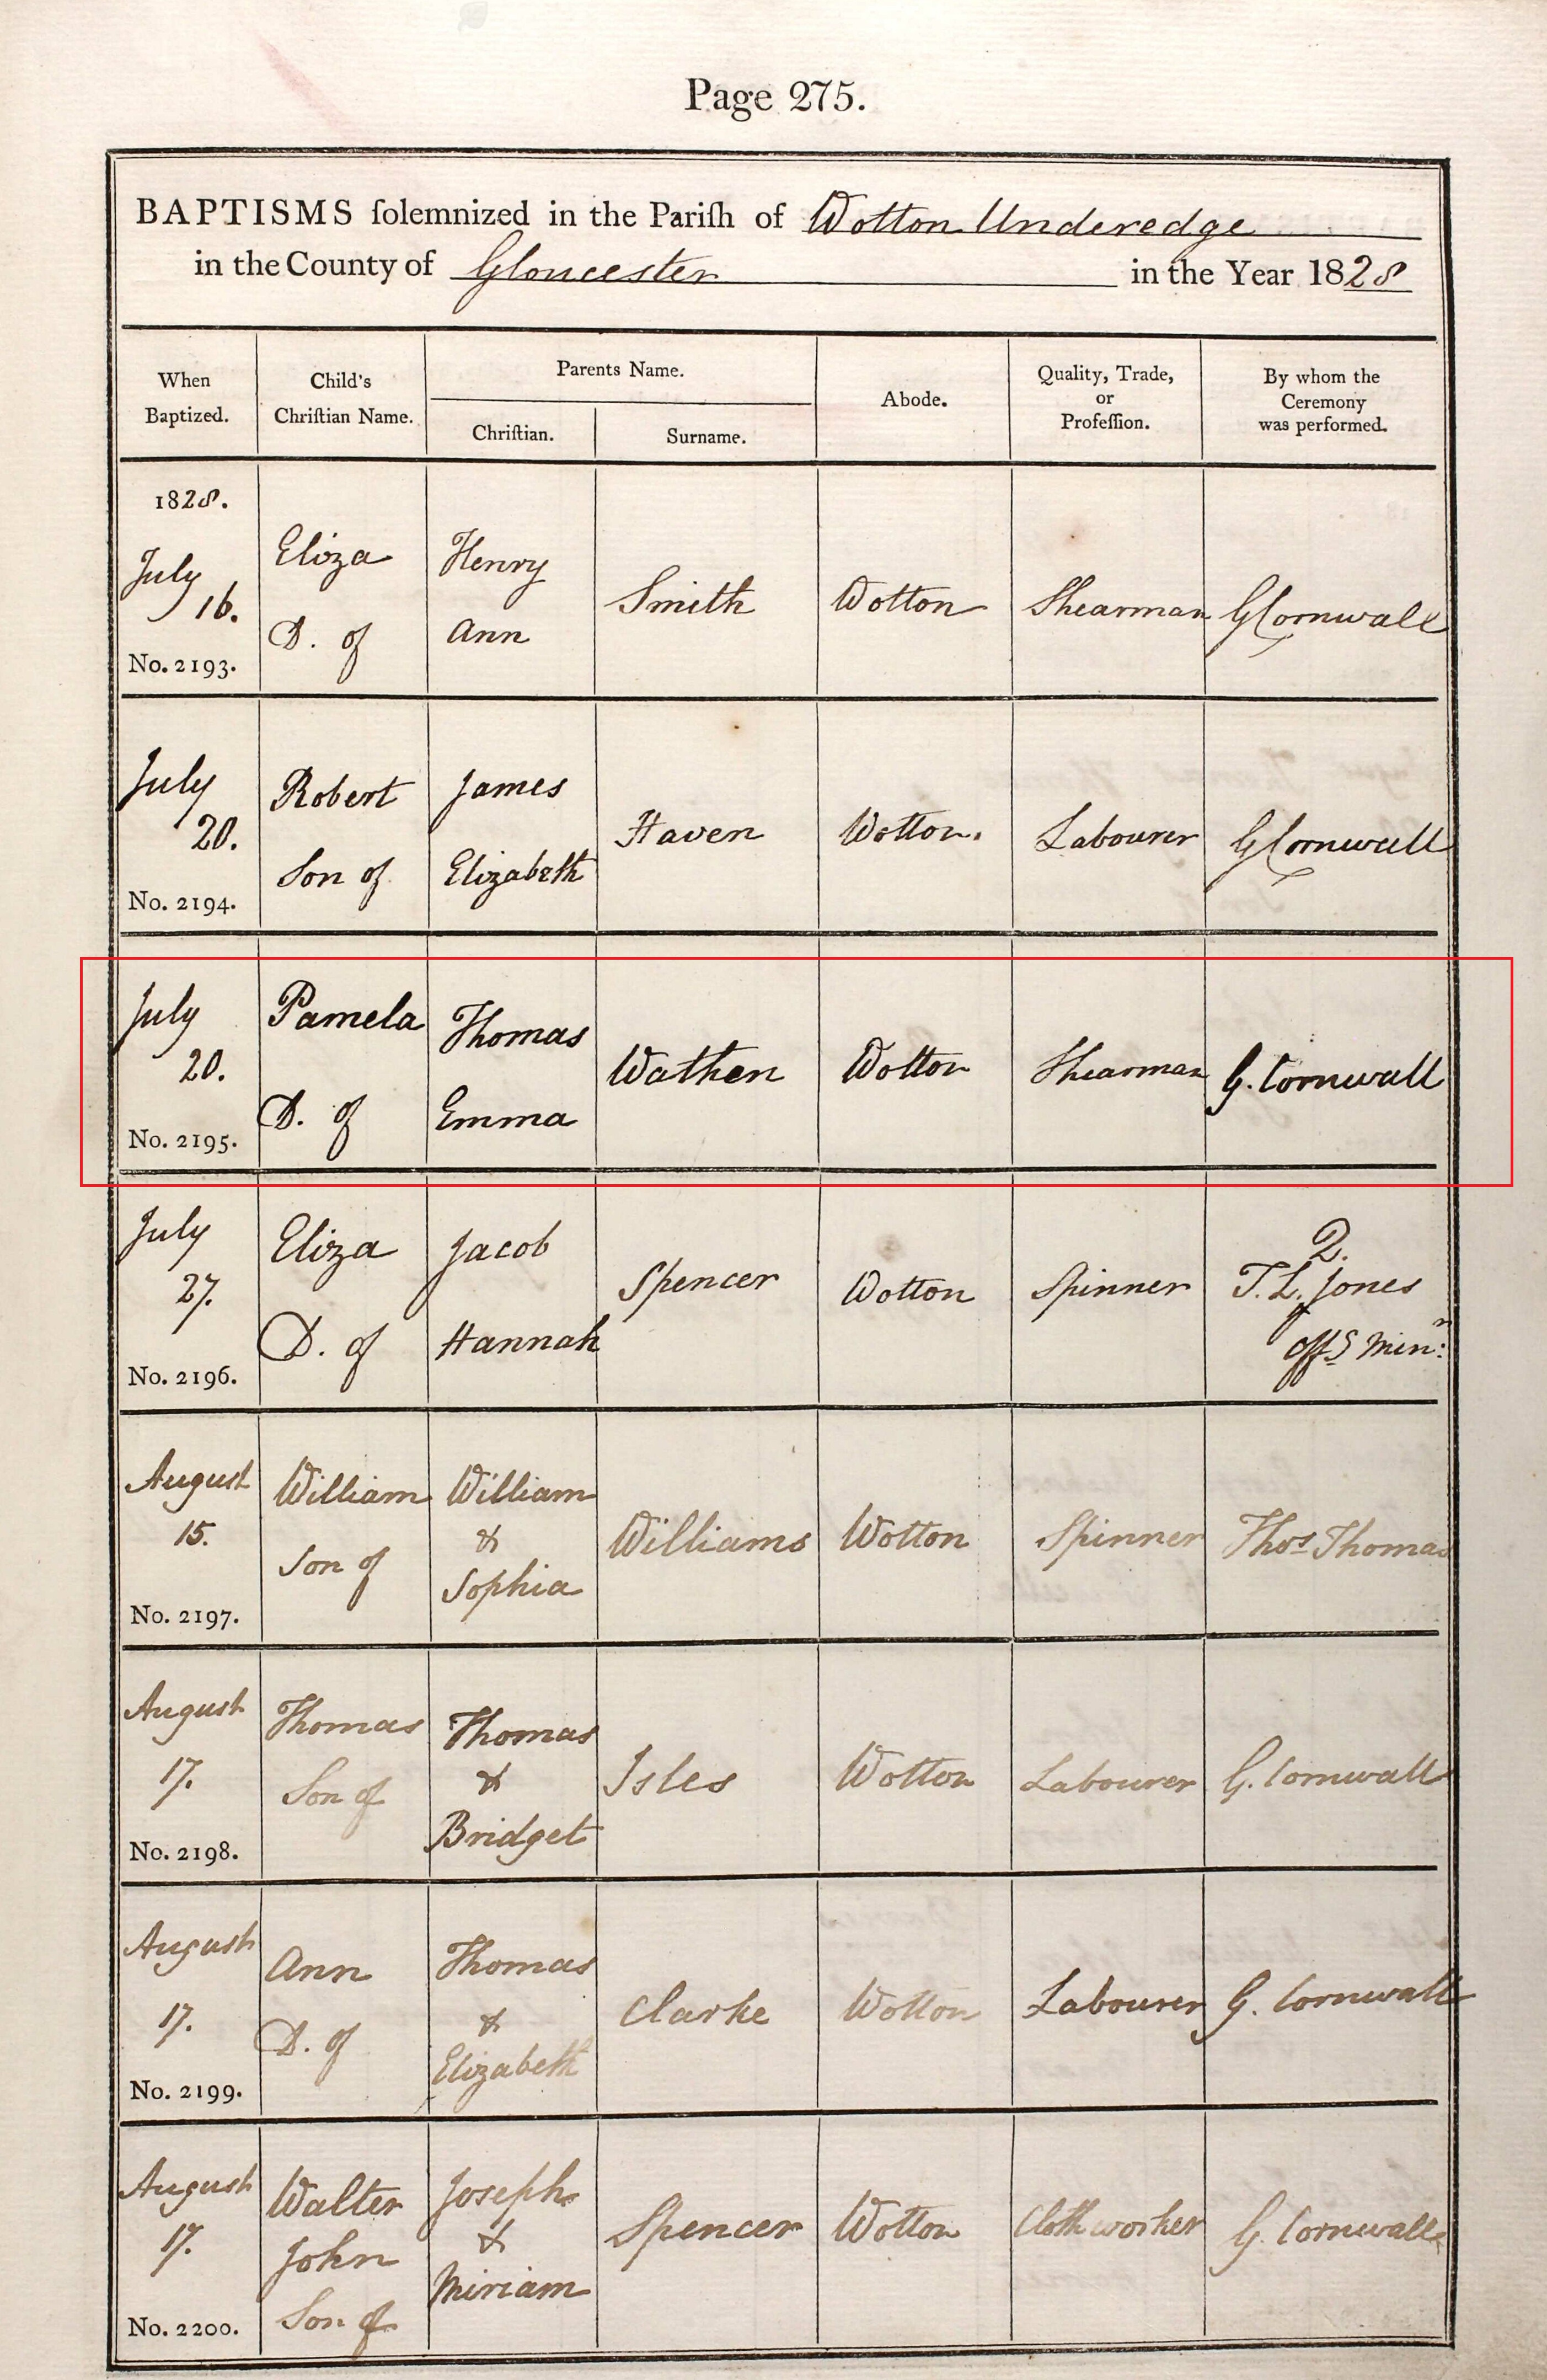 Page 275.
BAPTISMS ſolemnized in the Pariſh of Wotton Underedge
in the County of Gloucester in the Year 1828
When Baptized.
Child's Chriſtian Name.
Parents Name.
Chriſtian.
Surname.
Abode.
Quality, Trade, or Profeſſion.
By whom the Ceremony was performed.
1828.
July 16.
No. 2193.
Eliza D. of
Henry Ann
Smith
Wotton
Shearman
G Cornwall
July 20.
No. 2194.
Robert Son of
James Elizabeth
Haven
Wotton.
Labourer
G Cornwall
July 20.
No. 2195.
Pamela D. of
Thomas Emma
Wathen
Wotton
Shearman
G. Cornwall
July 27.
No. 2196.
Eliza D. of
Jacob Hannah
Spencer
Wotton
Spinner
T. L. Jones
Offg Minr:
August 15.
No. 2197.
William Son of
William & Sophia
Williams
Wotton
Spinner
Thos Thomas
August 17.
No. 2198.
Thomas Son of
Thomas & Bridget
Isles
Wotton
Labourer
G. Cornwall
August 17.
No. 2199.
Ann D. of
Thomas & Elizabeth
Clarke
Wotton
Labourer
G. Cornwall
August 17.
No. 2200.
Walter John Son of
Joseph & Miriam
Spencer
Wotton
Clothworker
G. Cornwall